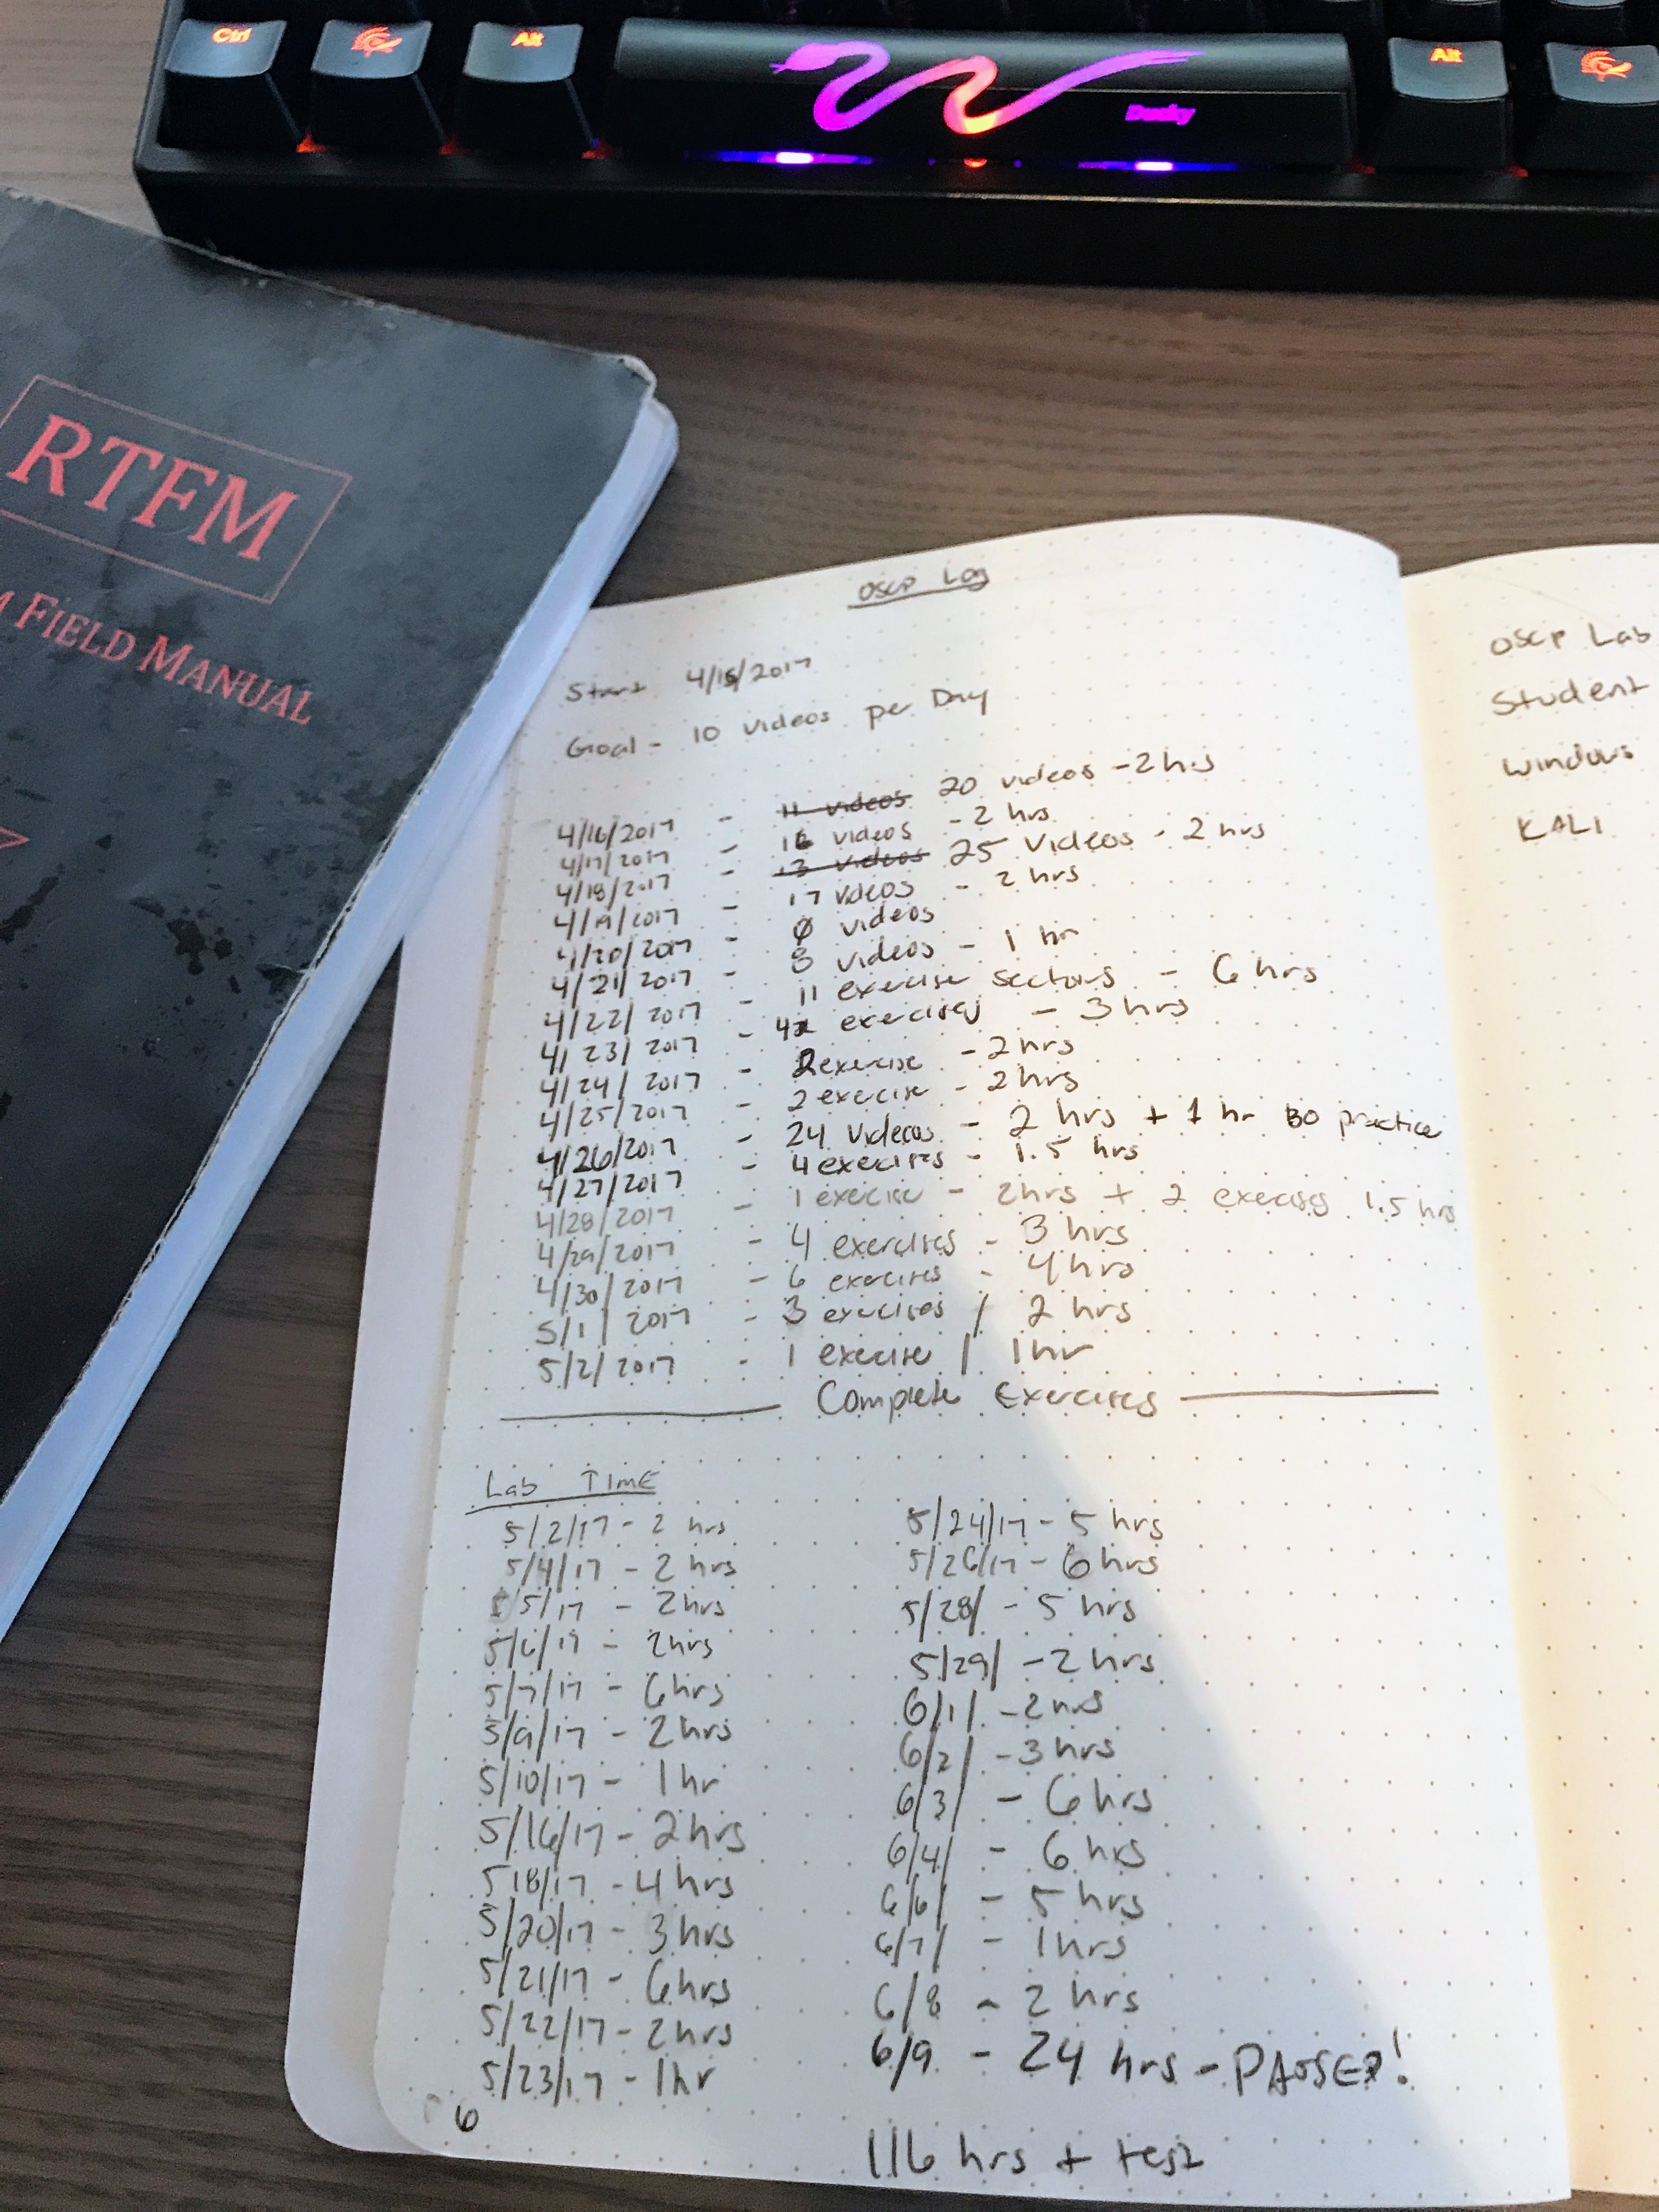 Ctrl
Alt
Ducky
Alt
RTFM
FIELD MANUAL
OSCP Log
Start 4/15/2017
Goal - 10 videos per Day
4/16/2017 - 11 videos 20 videos - 2 hrs
4/17/2017 - 16 videos - 2 hrs
4/18/2017 - 13 videos 25 videos - 2 hrs
4/19/2017 - 17 videos - 2 hrs
4/20/2017 - 0 videos
4/21/2017 - 8 videos - 1 hr
4/22/2017 - 11 exercise sections - 6 hrs
4/23/2017 - 4 exercises - 3 hrs
4/24/2017 - 2 exercise - 2 hrs
4/25/2017 - 2 exercise - 2 hrs
4/26/2017 - 24 videos - 2 hrs + 1 hr BO practice
4/27/2017 - 4 exercises - 1.5 hrs
4/28/2017 - 1 exercise - 2 hrs + 2 exercises 1.5 hrs
4/29/2017 - 4 exercises - 3 hrs
4/30/2017 - 6 exercises - 4 hrs
5/1/2017 - 3 exercises / 2 hrs
5/2/2017 - 1 exercise / 1 hr
Complete Exercises
Lab TIME
5/2/17 - 2 hrs
5/4/17 - 2 hrs
5/5/17 - 2 hrs
5/6/17 - 2 hrs
5/7/17 - 6 hrs
5/9/17 - 2 hrs
5/10/17 - 1 hr
5/16/17 - 2 hrs
5/18/17 - 4 hrs
5/20/17 - 3 hrs
5/21/17 - 6 hrs
5/22/17 - 2 hrs
5/23/17 - 1 hr
5/24/17 - 5 hrs
5/26/17 - 6 hrs
5/28/ - 5 hrs
5/29/ - 2 hrs
6/1/ - 2 hrs
6/2/ - 3 hrs
6/3/ - 6 hrs
6/4/ - 6 hrs
6/6/ - 5 hrs
6/7/ - 1 hrs
6/8 - 2 hrs
6/9 - 24 hrs - PASSED!
116 hrs + test
6
OSCP Lab
Student
Windows
KALI